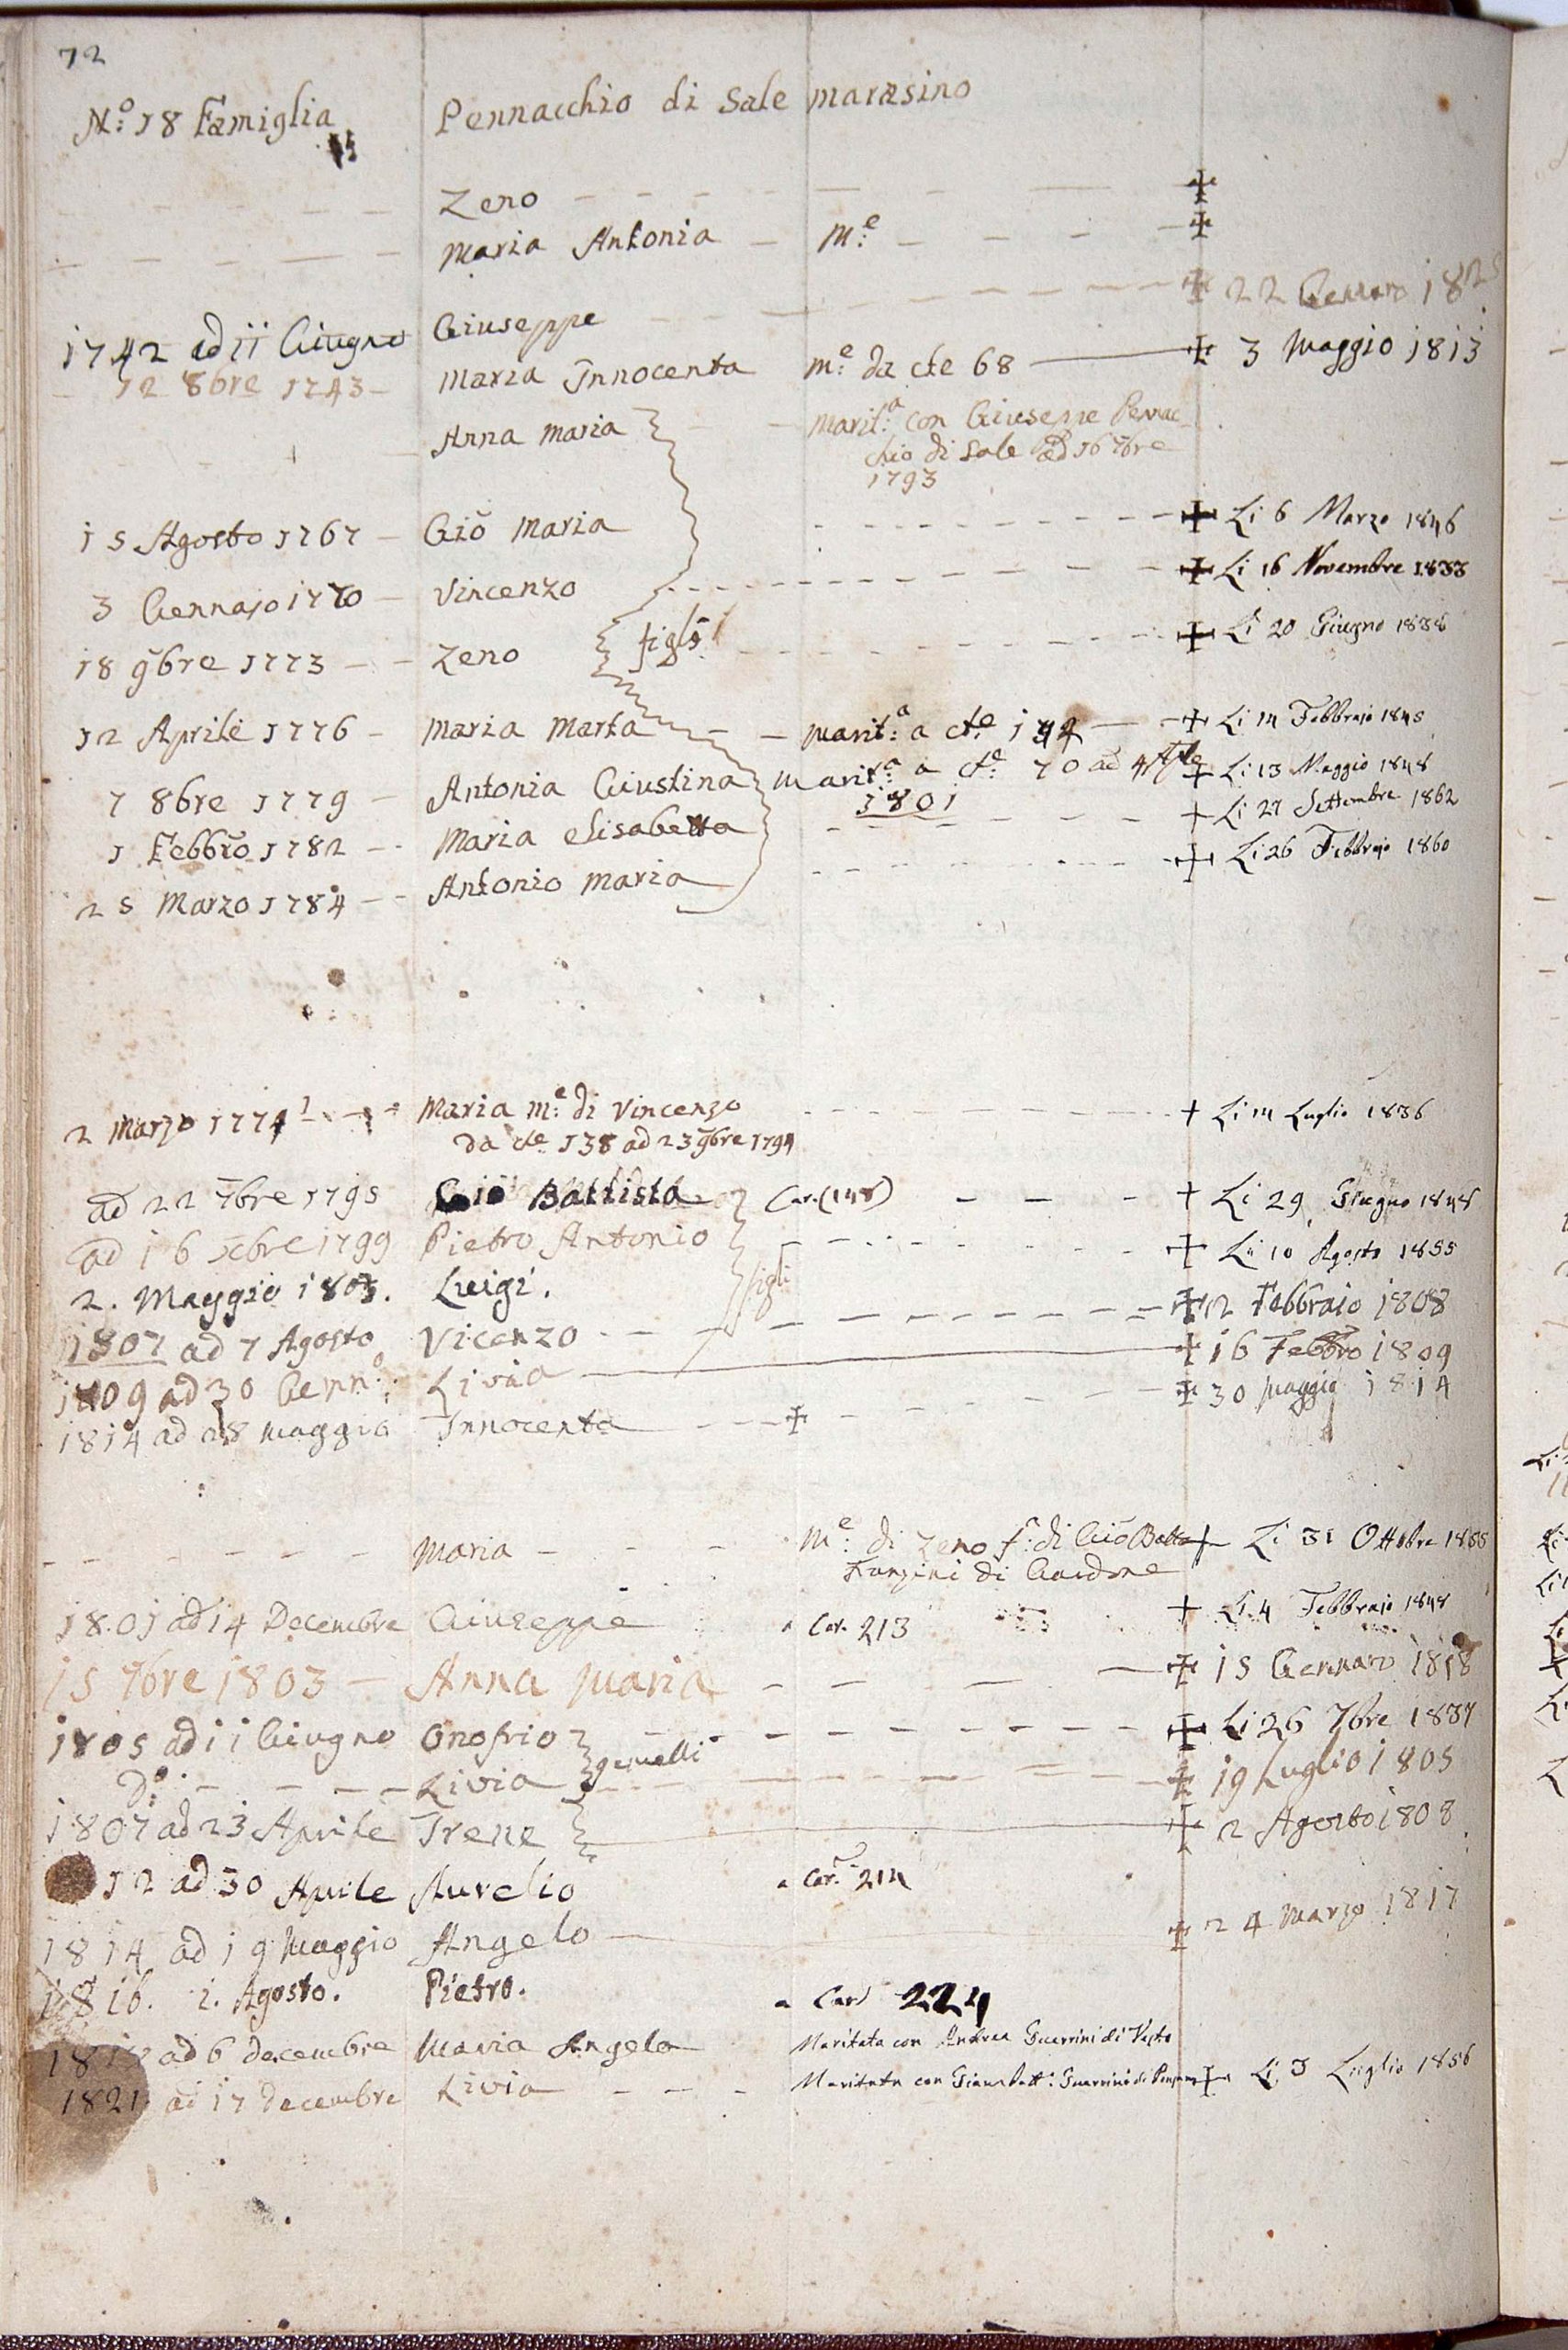 72
N.o 18 Famiglia Pennacchio di Sale marasino
Zeno
Maria Antonia m.e
1742 ad ii Giugno Giuseppe 22 Gennaro 182
12 8bre 1743 Maria Innocenta m.e da cte 68 3 Maggio 1813
Anna Maria marit.a con Giuseppe Pennac
chio di Sale ad 16 7bre
1793
15 Agosto 1767 Giō Maria Li 6 Marzo 1846
3 Gennajo 1770 Vincenzo Li 16 Novembre 1833
18 9bre 1773 Zeno figli Li 20 Giugno 1838
12 Aprile 1776 Maria Marta marit.a a cte Li 14 Febbrajo 1845
7 8bre 1779 Antonia Giustina marit.a a cte 70 ad 4 Aple Li 13 Maggio 1848
1801
1 Febbro 1782 Maria Elisabetta Li 27 Settembre 1862
25 Marzo 1784 Antonio Maria Li 26 Febbrajo 1860
2 Marzo 1774 Maria m.e di Vincenzo Li 14 Luglio 1836
da cte 138 ad 23 9bre 1794
ad 22 7bre 1795 Gio Battista Car. (148) Li 29 Giugno 1848
ad 16 xbre 1799 Pietro Antonio Li 10 Agosto 1855
2. Maggio 1803. Luigi. figli
1807 ad 7 Agosto Vicenzo 12 Febbraio 1808
1809 ad 30 Genn.o Livia 16 Febbro 1809
1814 ad 28 Maggio Innocenta 30 Maggio 1814
Maria m.e di Zeno f. di Giō Batta Li 31 Ottobre 18
di Gardone
1801 ad 14 Decembre Giuseppe a Car. 213 Li 4 Febbrajo 1848
15 7bre 1803 Anna Maria 15 Gennaro 1818
1805 ad ii Giugno Onofrio Li 26 7bre 1837
D.o Livia gemelli 19 Luglio 1805
1807 ad 23 Aprile Irene 2 Agosto 1808
12 ad 30 Aprile Aurelio a Car. 214
1814 ad 19 Maggio Angelo 24 Marzo 1817
1816. 1. Agosto. Pietro. a Car 224
ad 6 decembre Maria Angela Maritata con Andrea Guerrini di Vesto
1821 ad 17 decembre Livia Maritata con Giam Batt. Guerrini di Li 3 Luglio 1856